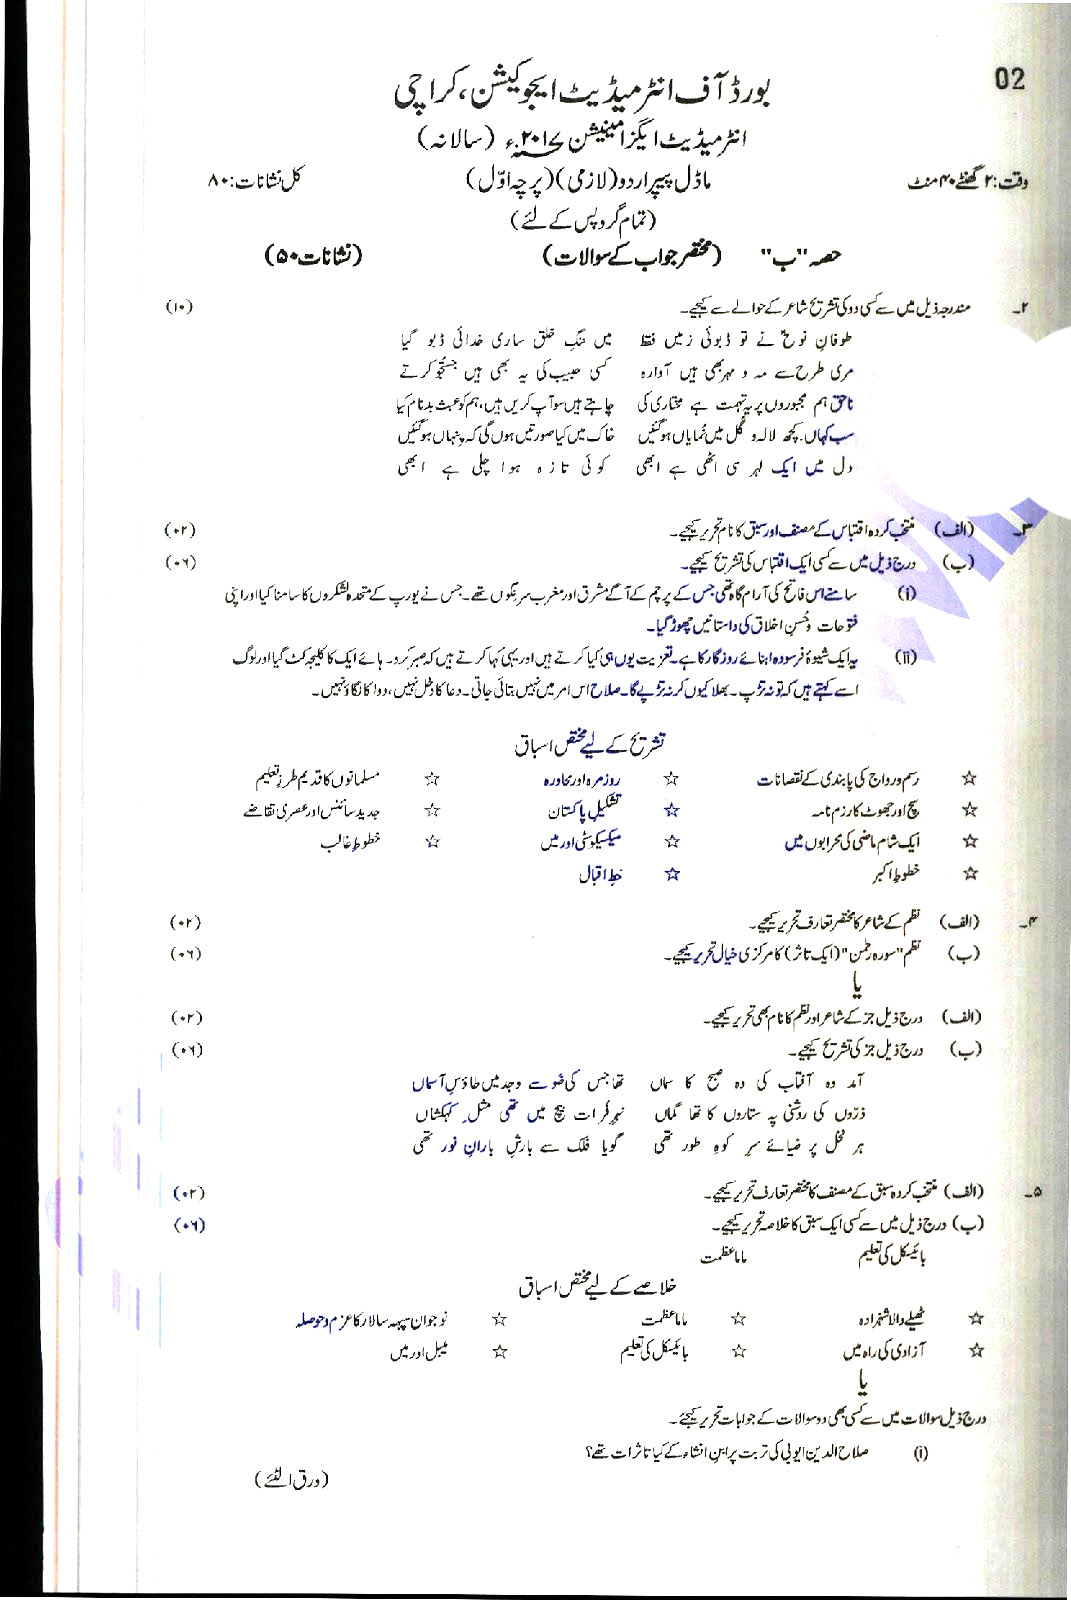 02
بورڈ آف انٹرمیڈیٹ ایجوکیشن، کراچی
انٹرمیڈیٹ ایگزامینیشن ۲۰۱۷ء (سالانہ)
وقت: ۲ گھنٹے ۴۰ منٹ ماڈل پیپر اردو (لازمی) (پرچہ اوّل) کل نشانات: ۸۰
(تمام گروپس کے لئے)
حصہ "ب" (مختصر جواب کے سوالات) (نشانات ۵۰)
۲۔ مندرجہ ذیل میں سے کسی دو کی تشریح شاعر کے حوالے سے کیجیے۔ (۱۰)
طوفانِ نوحؑ نے تو ڈبوئی زمیں فقط میں ننگِ خلق ساری خدائی ڈبو گیا
مری طرح سے مہ و مہر بھی ہیں آوارہ کسی حبیب کی یہ بھی ہیں جستجو کرتے
ناحق ہم مجبوروں پر یہ تہمت ہے مختاری کی چاہتے ہیں سو آپ کریں ہیں، ہم کو عبث بدنام کیا
سب کہاں، کچھ لالہ و گل میں نمایاں ہو گئیں خاک میں کیا صورتیں ہوں گی کہ پنہاں ہو گئیں
دل میں ایک لہر سی اٹھی ہے ابھی کوئی تازہ ہوا چلی ہے ابھی
۳۔ (الف) منتخب کردہ اقتباس کے مصنف اور سبق کا نام تحریر کیجیے۔ (۰۲)
(ب) درج ذیل میں سے کسی ایک اقتباس کی تشریح کیجیے۔ (۰۶)
(i) سامنے اس فاتح کی آرام گاہ تھی جس کے پرچم کے آگے مشرق اور مغرب سرنگوں تھے۔ جس نے یورپ کے متحدہ لشکروں کا سامنا کیا اور اپنی
فتوحات و حُسنِ اخلاق کی داستانیں چھوڑ گیا۔
(ii) یہ ایک شیوۂ فرسودہ ابنائے روزگار کا ہے۔ تعزیت یوں ہی کیا کرتے ہیں اور یہی کہا کرتے ہیں کہ صبر کرو۔ ہائے ایک کا کلیجہ کٹ گیا اور لوگ
اسے کہتے ہیں کہ تو نہ تڑپ۔ بھلا کیوں کر نہ تڑپے گا۔ صلاح اس امر میں نہیں بتائی جاتی۔ دعا کا دخل نہیں، دوا کا لگاؤ نہیں۔
تشریح کے لیے مختص اسباق
☆ رسم و رواج کی پابندی کے نقصانات ☆ روزمرہ اور محاورہ ☆ مسلمانوں کا قدیم طرزِ تعلیم
☆ سچ اور جھوٹ کا رزم نامہ ☆ تشکیلِ پاکستان ☆ جدید سائنس اور عصری تقاضے
☆ ایک شام ماضی کی محرابوں میں ☆ میکسیکو سٹی اور میں ☆ خطوطِ غالب
☆ خطوطِ اکبر ☆ خطِ اقبال
۴۔ (الف) نظم کے شاعر کا مختصر تعارف تحریر کیجیے۔ (۰۲)
(ب) نظم "سورہ رحمٰن" (ایک تاثر) کا مرکزی خیال تحریر کیجیے۔ (۰۶)
یا
(الف) درج ذیل جز کے شاعر اور نظم کا نام بھی تحریر کیجیے۔ (۰۲)
(ب) درج ذیل جز کی تشریح کیجیے۔ (۰۶)
آمد وہ آفتاب کی وہ صبح کا سماں تھا جس کی ضو سے وجد میں طاؤسِ آسماں
ذرّوں کی روشنی پہ ستاروں کا تھا گماں نہرِ فرات بیچ میں تھی مثلِ کہکشاں
ہر نخل پر ضیائے سرِ کوہِ طور تھی گویا فلک سے بارشِ بارانِ نور تھی
۵۔ (الف) منتخب کردہ سبق کے مصنف کا مختصر تعارف تحریر کیجیے۔ (۰۲)
(ب) درج ذیل میں سے کسی ایک سبق کا خلاصہ تحریر کیجیے۔ (۰۶)
بائیسکل کی تعلیم ماما عظمت
خلاصے کے لیے مختص اسباق
☆ ٹھیلے والا شہزادہ ☆ ماما عظمت ☆ نوجوان سپہ سالار کا عزم و حوصلہ
☆ آزادی کی راہ میں ☆ بائیسکل کی تعلیم ☆ میبل اور میں
یا
درج ذیل سوالات میں سے کسی بھی دو سوالات کے جوابات تحریر کیجئے۔
(i) صلاح الدین ایوبی کی تربت پر ابنِ انشاء کے کیا تاثرات تھے؟
(ورق الٹئے)